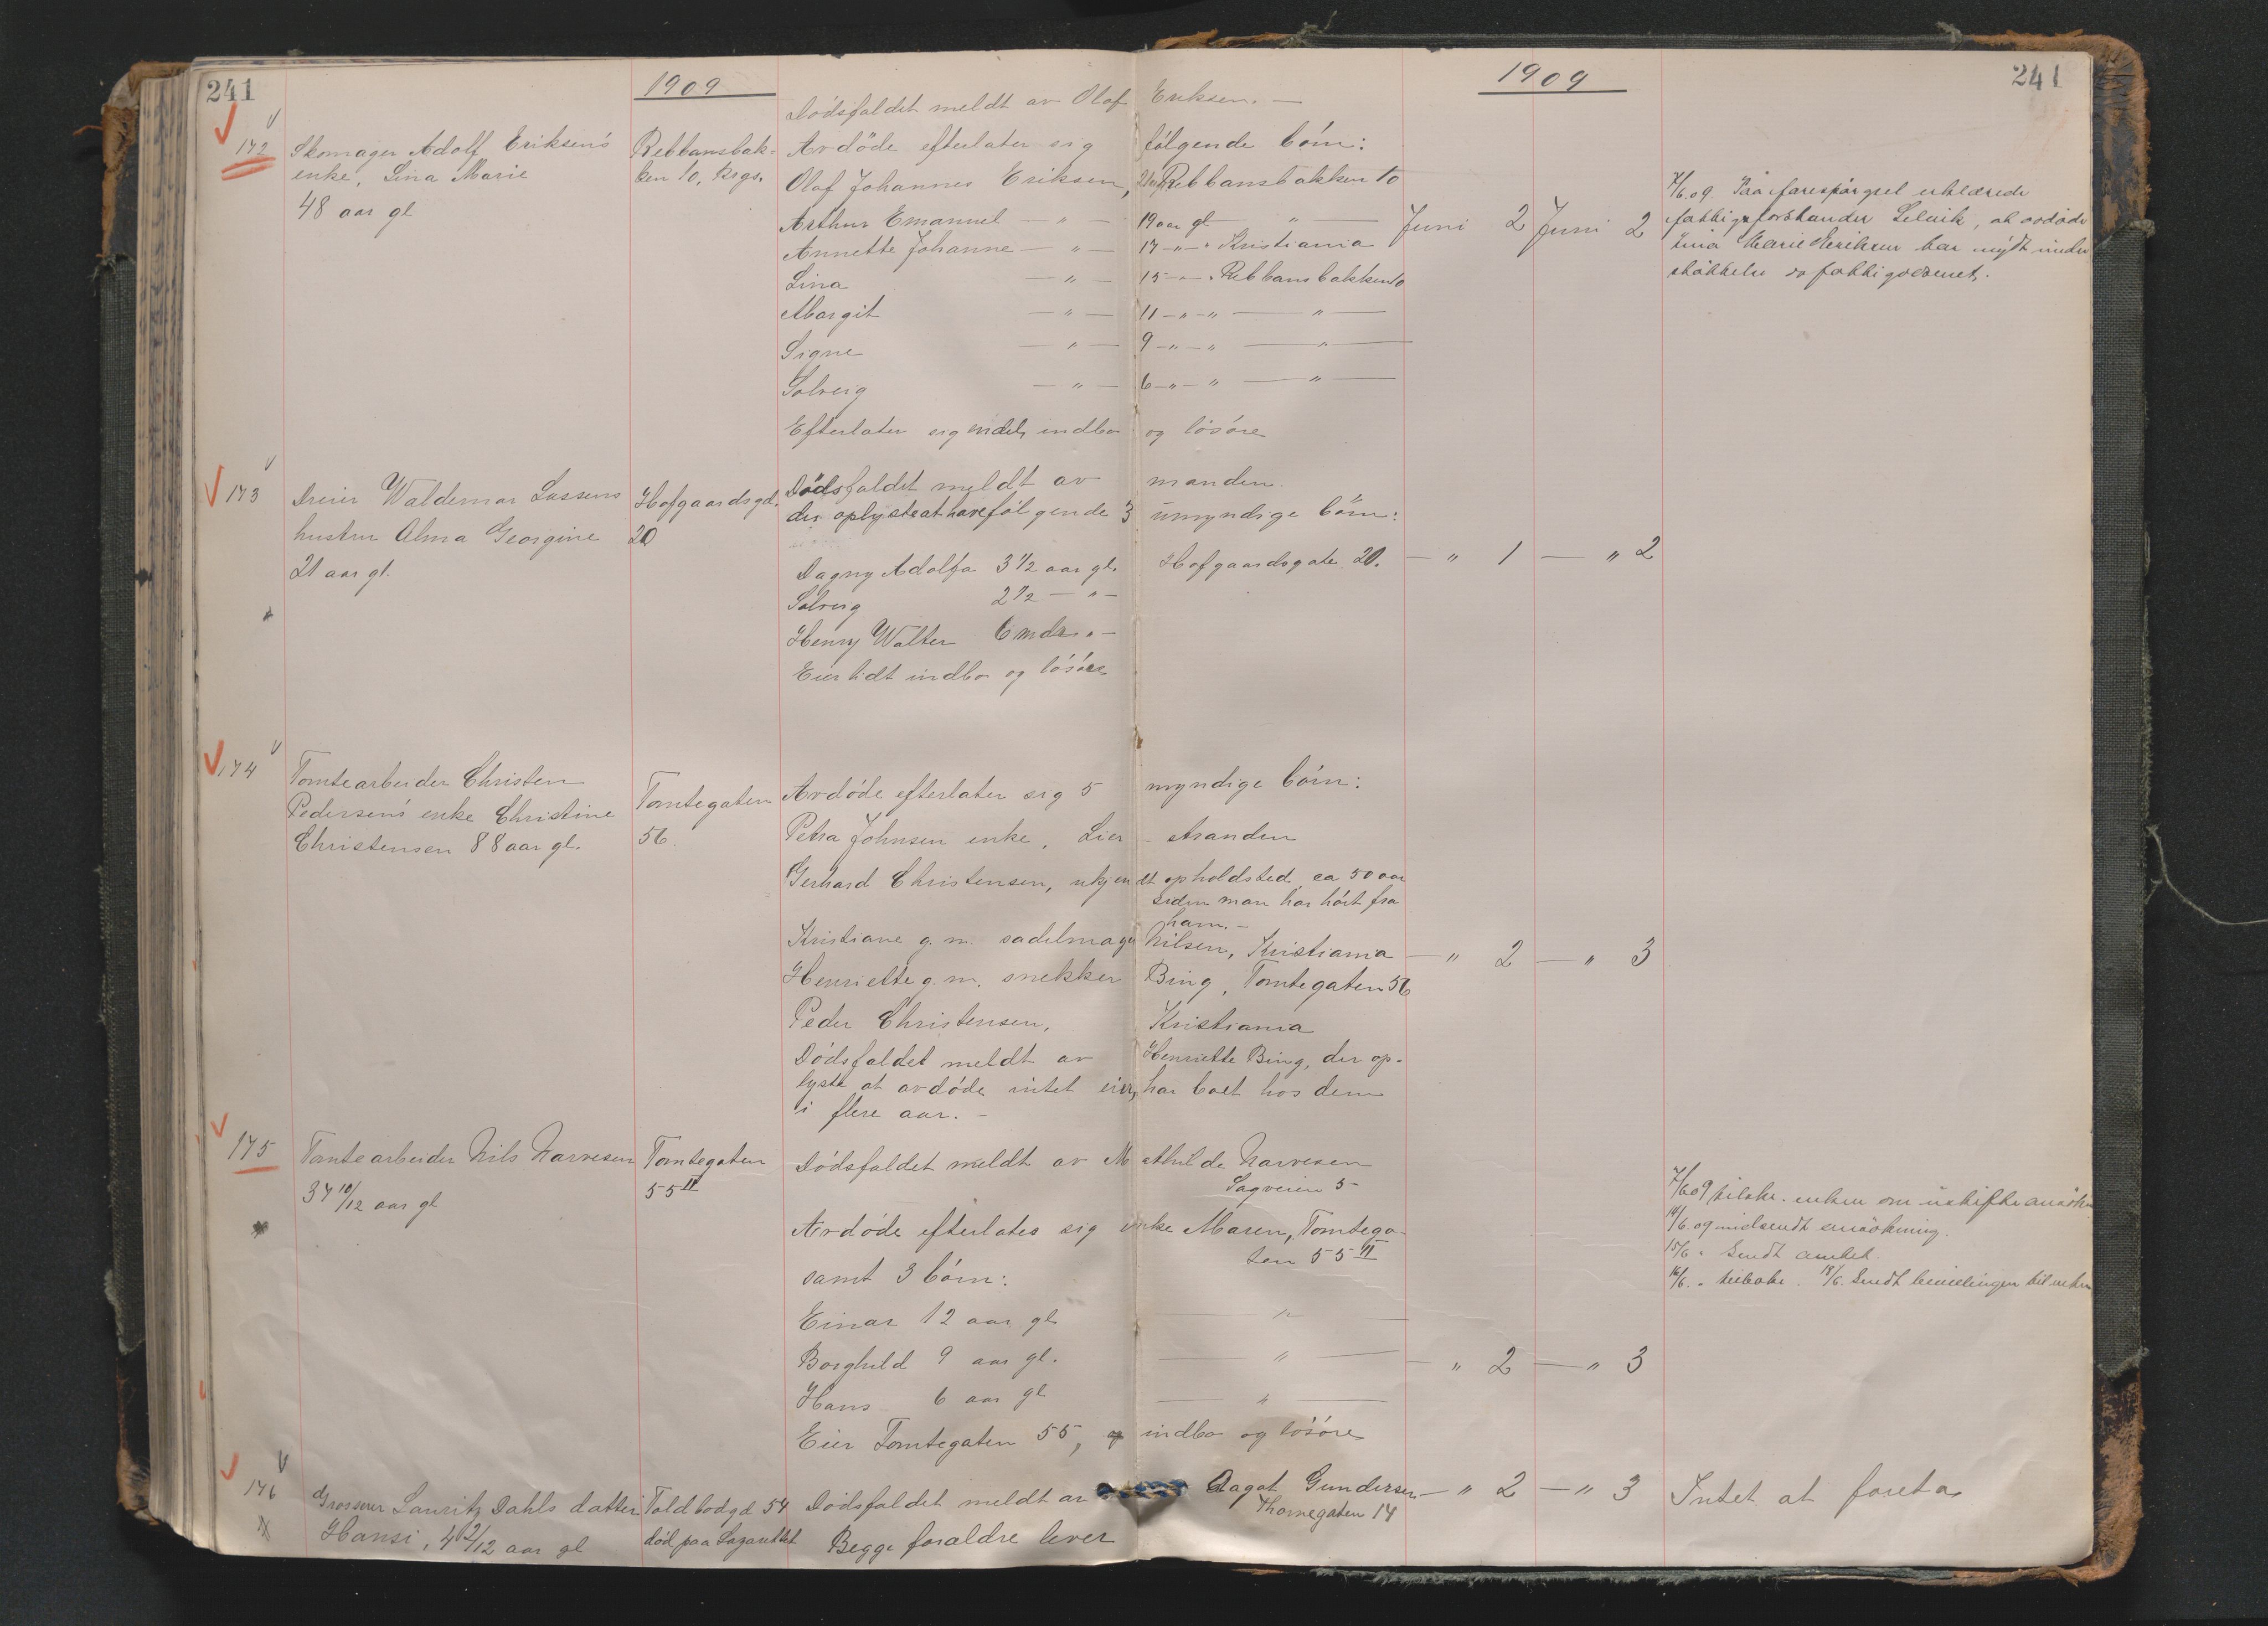 241
1909
1909
241
Dödsfaldet meldt av Olaf Eriksen. —
172 Skomager Adolf Eriksens
enke, Lina Marie
48 aar gl
Rebbansbak-
ken 10, Brgs.
Avdöde efterlater sig følgende börn:
Olaf Johannes Eriksen, Rebbansbakken 10
Arthur Emanuel — " — 19 aar gl — " —
Annette Johanne — " — 17 — " — " Kristiania
Lina — " — 15 — " — " Rebbansbakken 10
Margit — " — 11 — " — " — " —
Signe — " — 9 — " — " — " —
Solveig — " — 6 — " — " — " —
Efterlater sig endel indbo og lösöre
Juni 2 Juni 2
7/6.09. Paa forespörgsel erklærede
fattigforstander Selvik, at avdöde
Lina Marie Eriksen har nydt under
stöttelse av fattigvæsenet.
173 Dreier Waldemar Lassens
hustru Alma Georgine
21 aar gl.
Hofgaardsgd.
20
Dödsfaldet meldt av manden
der oplyste at have følgende 3 umyndige börn:
Dagny Adolfa 3 1/2 aar gl. Hofgaardsgate 20.
Solveig 2 1/2 — " —
Henry Walter 6 mdr. " —
Eier lidt indbo og lösöre
— " 1 — " 2
174 Tomtearbeider Christen
Pedersens enke Christine
Christensen 88 aar gl.
Tomtegaten
56.
Avdöde efterlater sig 5 myndige börn:
Petra Johnsen enke, Lier - stranden
Gerhard Christensen, ukjendt opholdsted ca 50 aar
siden man har hört fra
ham. —
Kristiane g. m. sadelmager Nilsen, Kristiania
Henriette g. m. snekker Bing, Tomtegaten 56
Peder Christensen, Kristiania
Dödsfaldet meldt av Henriette Bing, der op-
lyste at avdöde intet eier, har boet hos dem
i flere aar. —
— " 2 — " 3
175 Tomtearbeider Nils Narvesen
37 10/12 aar gl
Tomtegaten
55 II
Dödsfaldet meldt av Mathilde Narvesen
Sagveien 5
Avdöde efterlater sig enke Maren, Tomtega-
ten 55 II
samt 3 börn:
Einar 12 aar gl — " —
Borghild 9 aar gl. — " —
Hans 6 aar gl — " —
Eier Tomtegaten 55, indbo og lösöre
— " 2 — " 3
7/6 09 tilskr. enken om uskifte
14/6. og indsendt ansökning.
15/6 " Sendt amtet.
16/6. " tilbake. 18/6. Sendt bevillingen til enken
176 Grosserer Lauritz Dahls datter
Hansi, 4 2/12 aar gl
Toldbodgd 54
död paa Lazarettet
Dödsfaldet meldt av Aagot Gundersen
Thornegaten 14
Begge foraldre lever
— " 2 — " 3
Intet at foreta